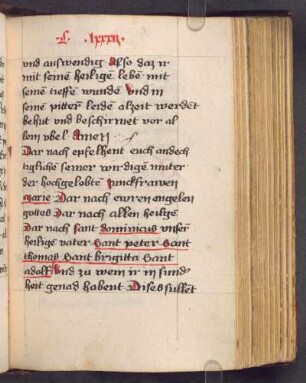 C. lxxxii
vnd auswendig Also daz ir
mit seinē heiligē lebē mit
seinē tieffē wundē Vnd in
seinē pittern leidē alzeit werdēt
behut vnd beschirmet vor al
lem vbel Amen
Dar nach epfelhent euch andech
tiglichē seiner wirdigen muter
der hochgelobtē iunckfrawen
marie Dar nach ewrē engelen
gottes Dar nach allen heilgē
Dar nach sant dominicus vnserm
heilige vater sant peter sant
thomas sant brigitta sant
adolf Vnd zu wem ir in sund
heit genad habent Dises sullēt